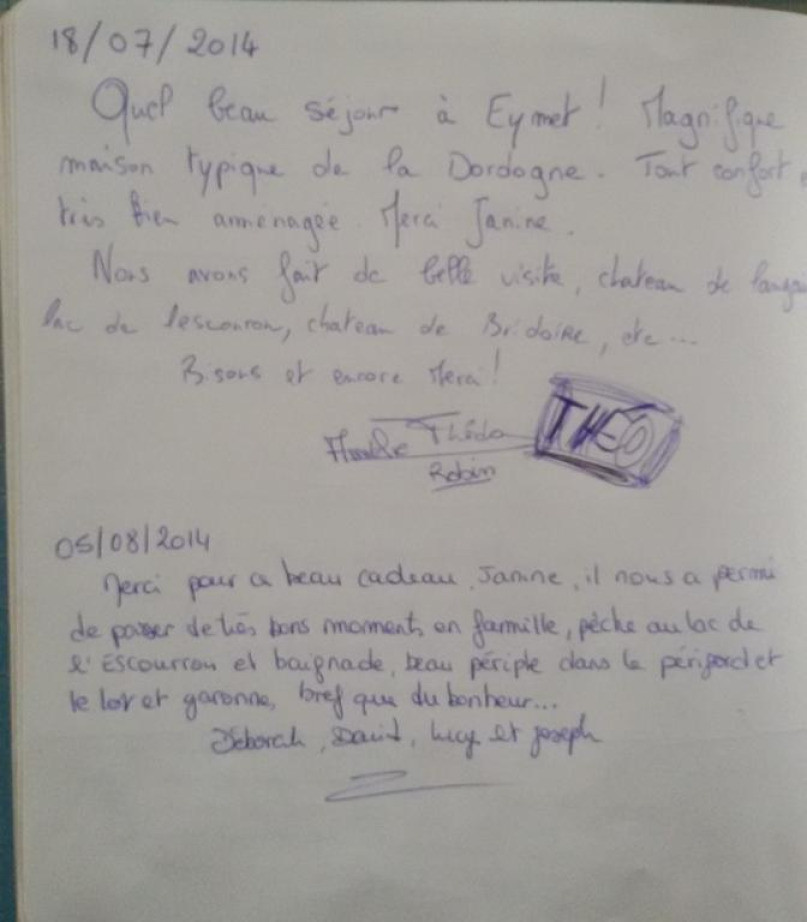 18/07/2014
Quel beau séjour à Eymet! Magnifique
maison typique de la Dordogne. Tout confort,
très bien aménagée. Merci Janine.
Nous avons fait de belle visite, chateau de
lac de lescourou, chateau de Bridoire, etc...
Bisous et encore Merci!
THEO
Robin
05/08/2014
Merci pour ce beau cadeau Janine, il nous a permi
de passer de très bons moments en famille, pêche au lac de
l'Escourrou et baignade, beau périple dans le périgord et
le lot et garonne, bref que du bonheur...
Déborah, David, Lucy et Joseph